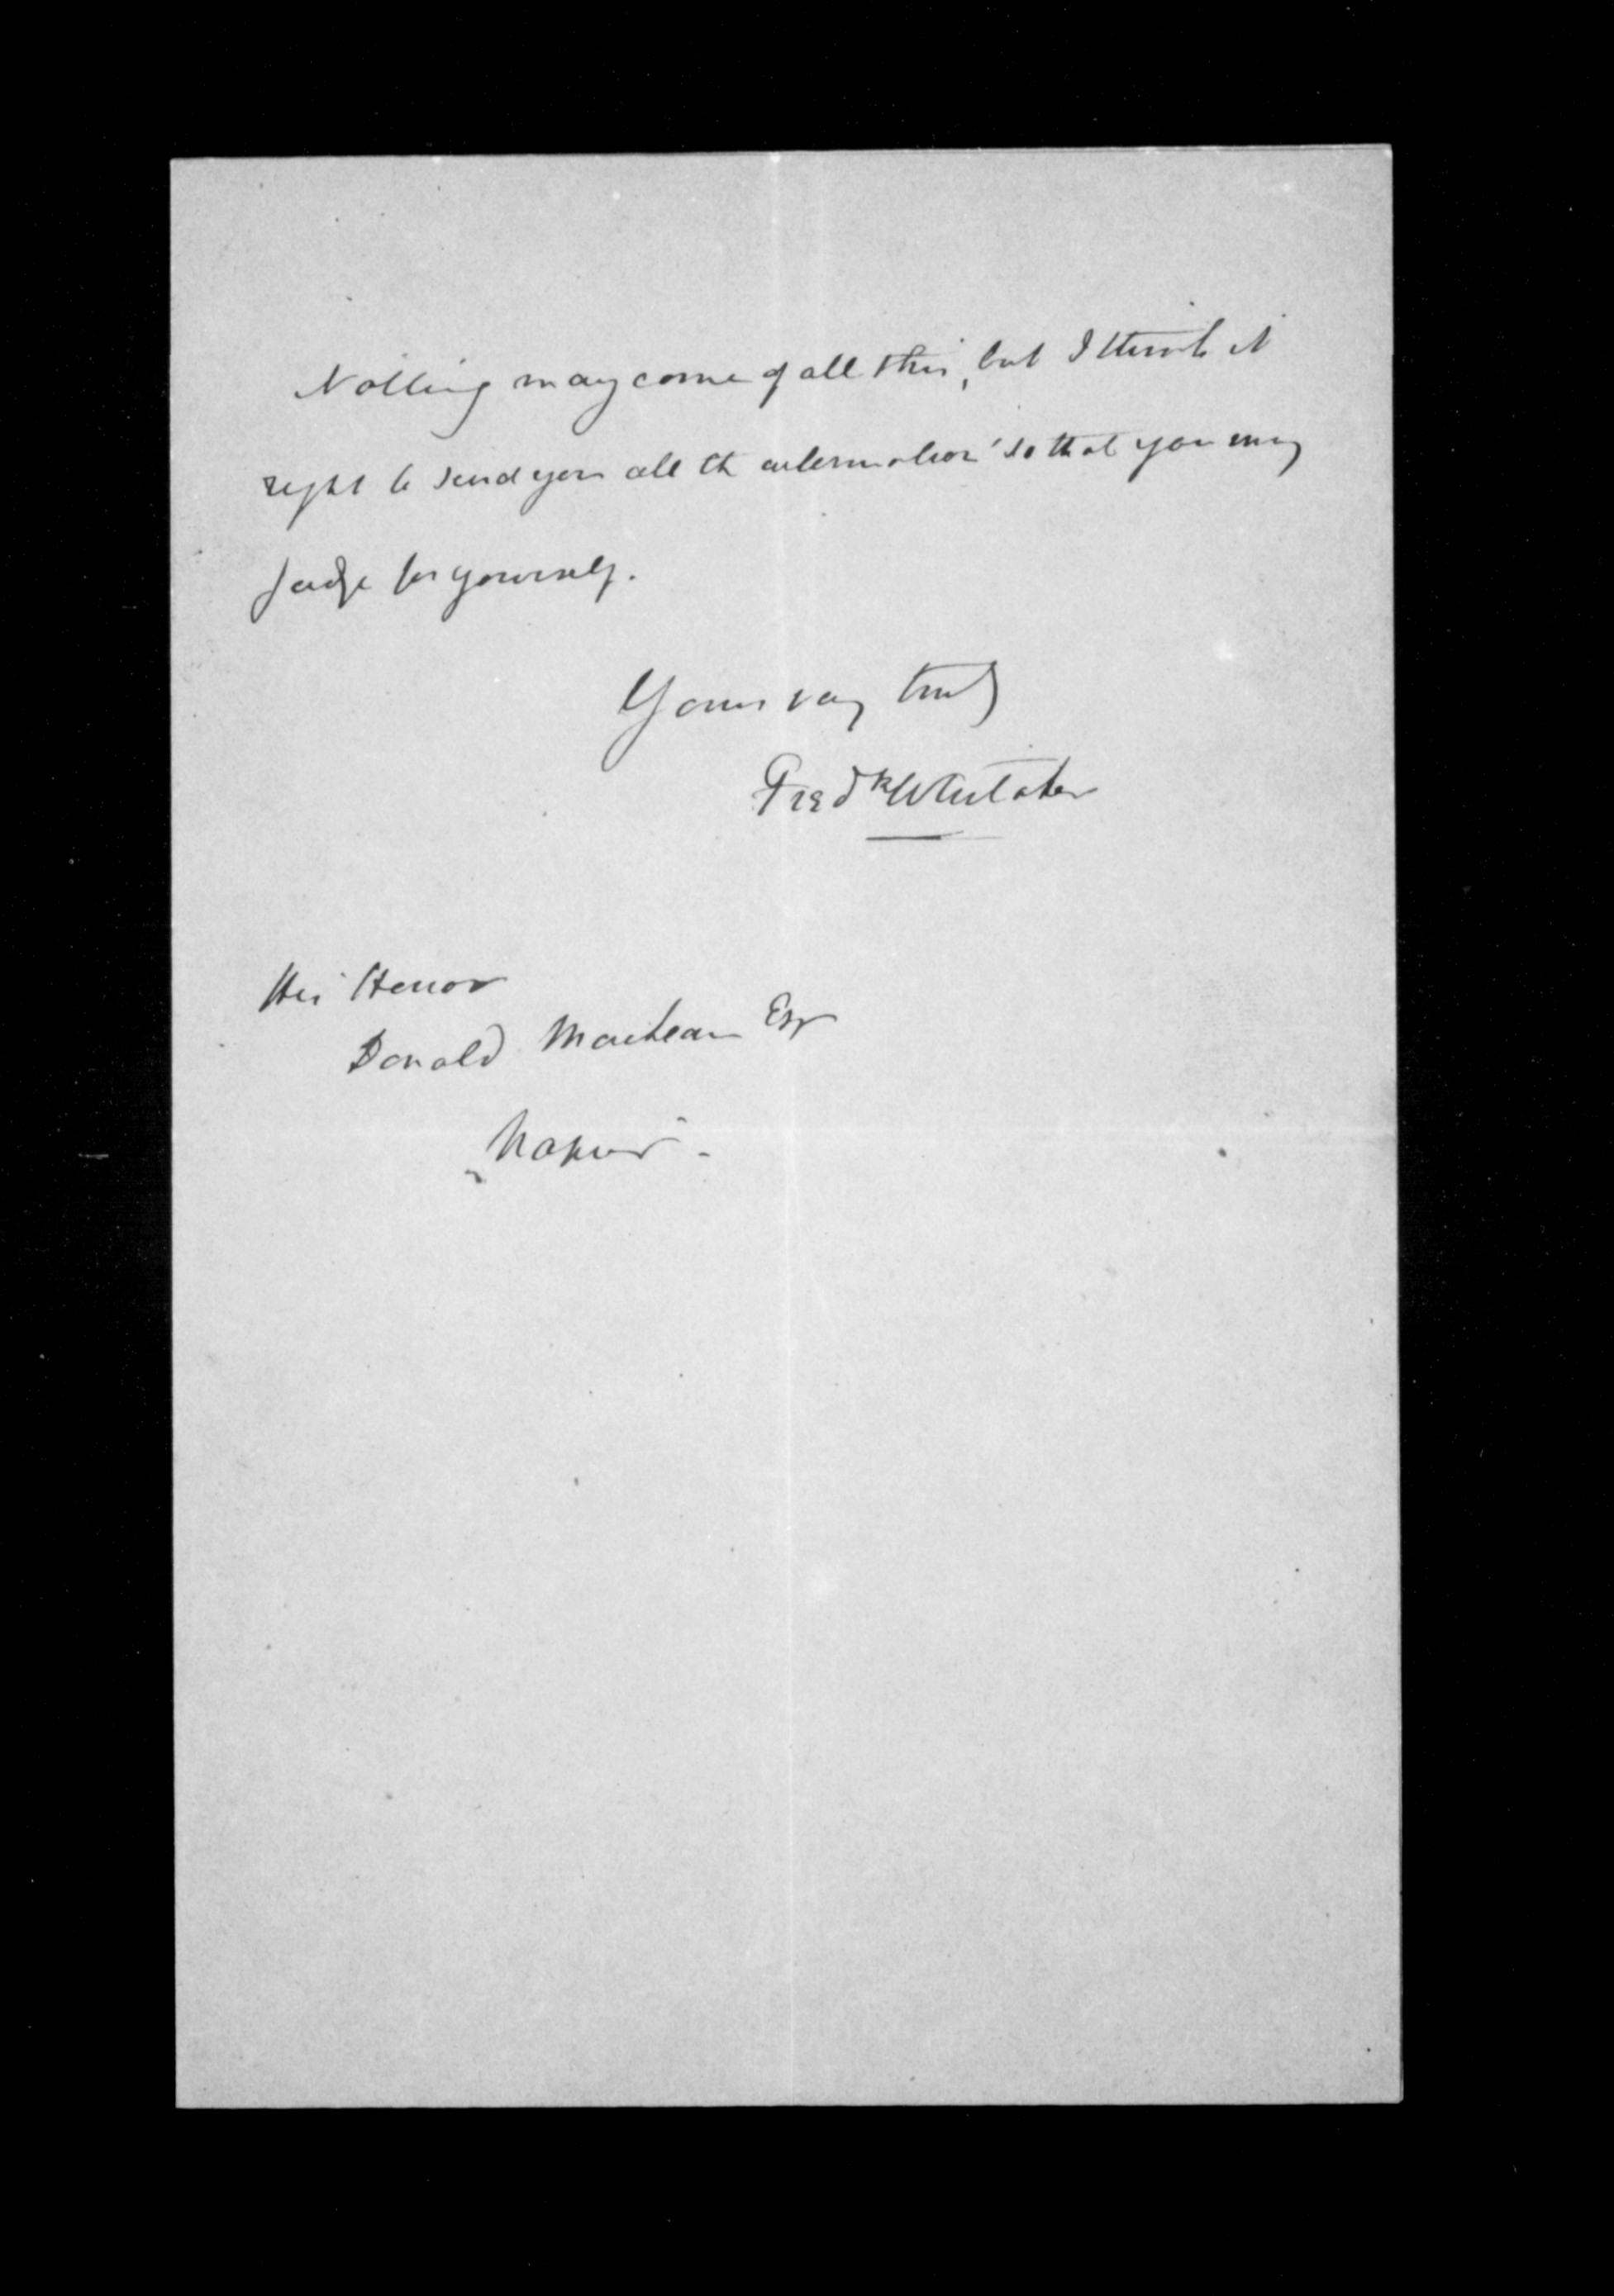 Nothing may come of all this, but I think it
right to send you all the information so that you may
judge for yourself.
Yours very truly
Fredk Whitaker
His Honor
Donald MacLean Esqr
Napier.